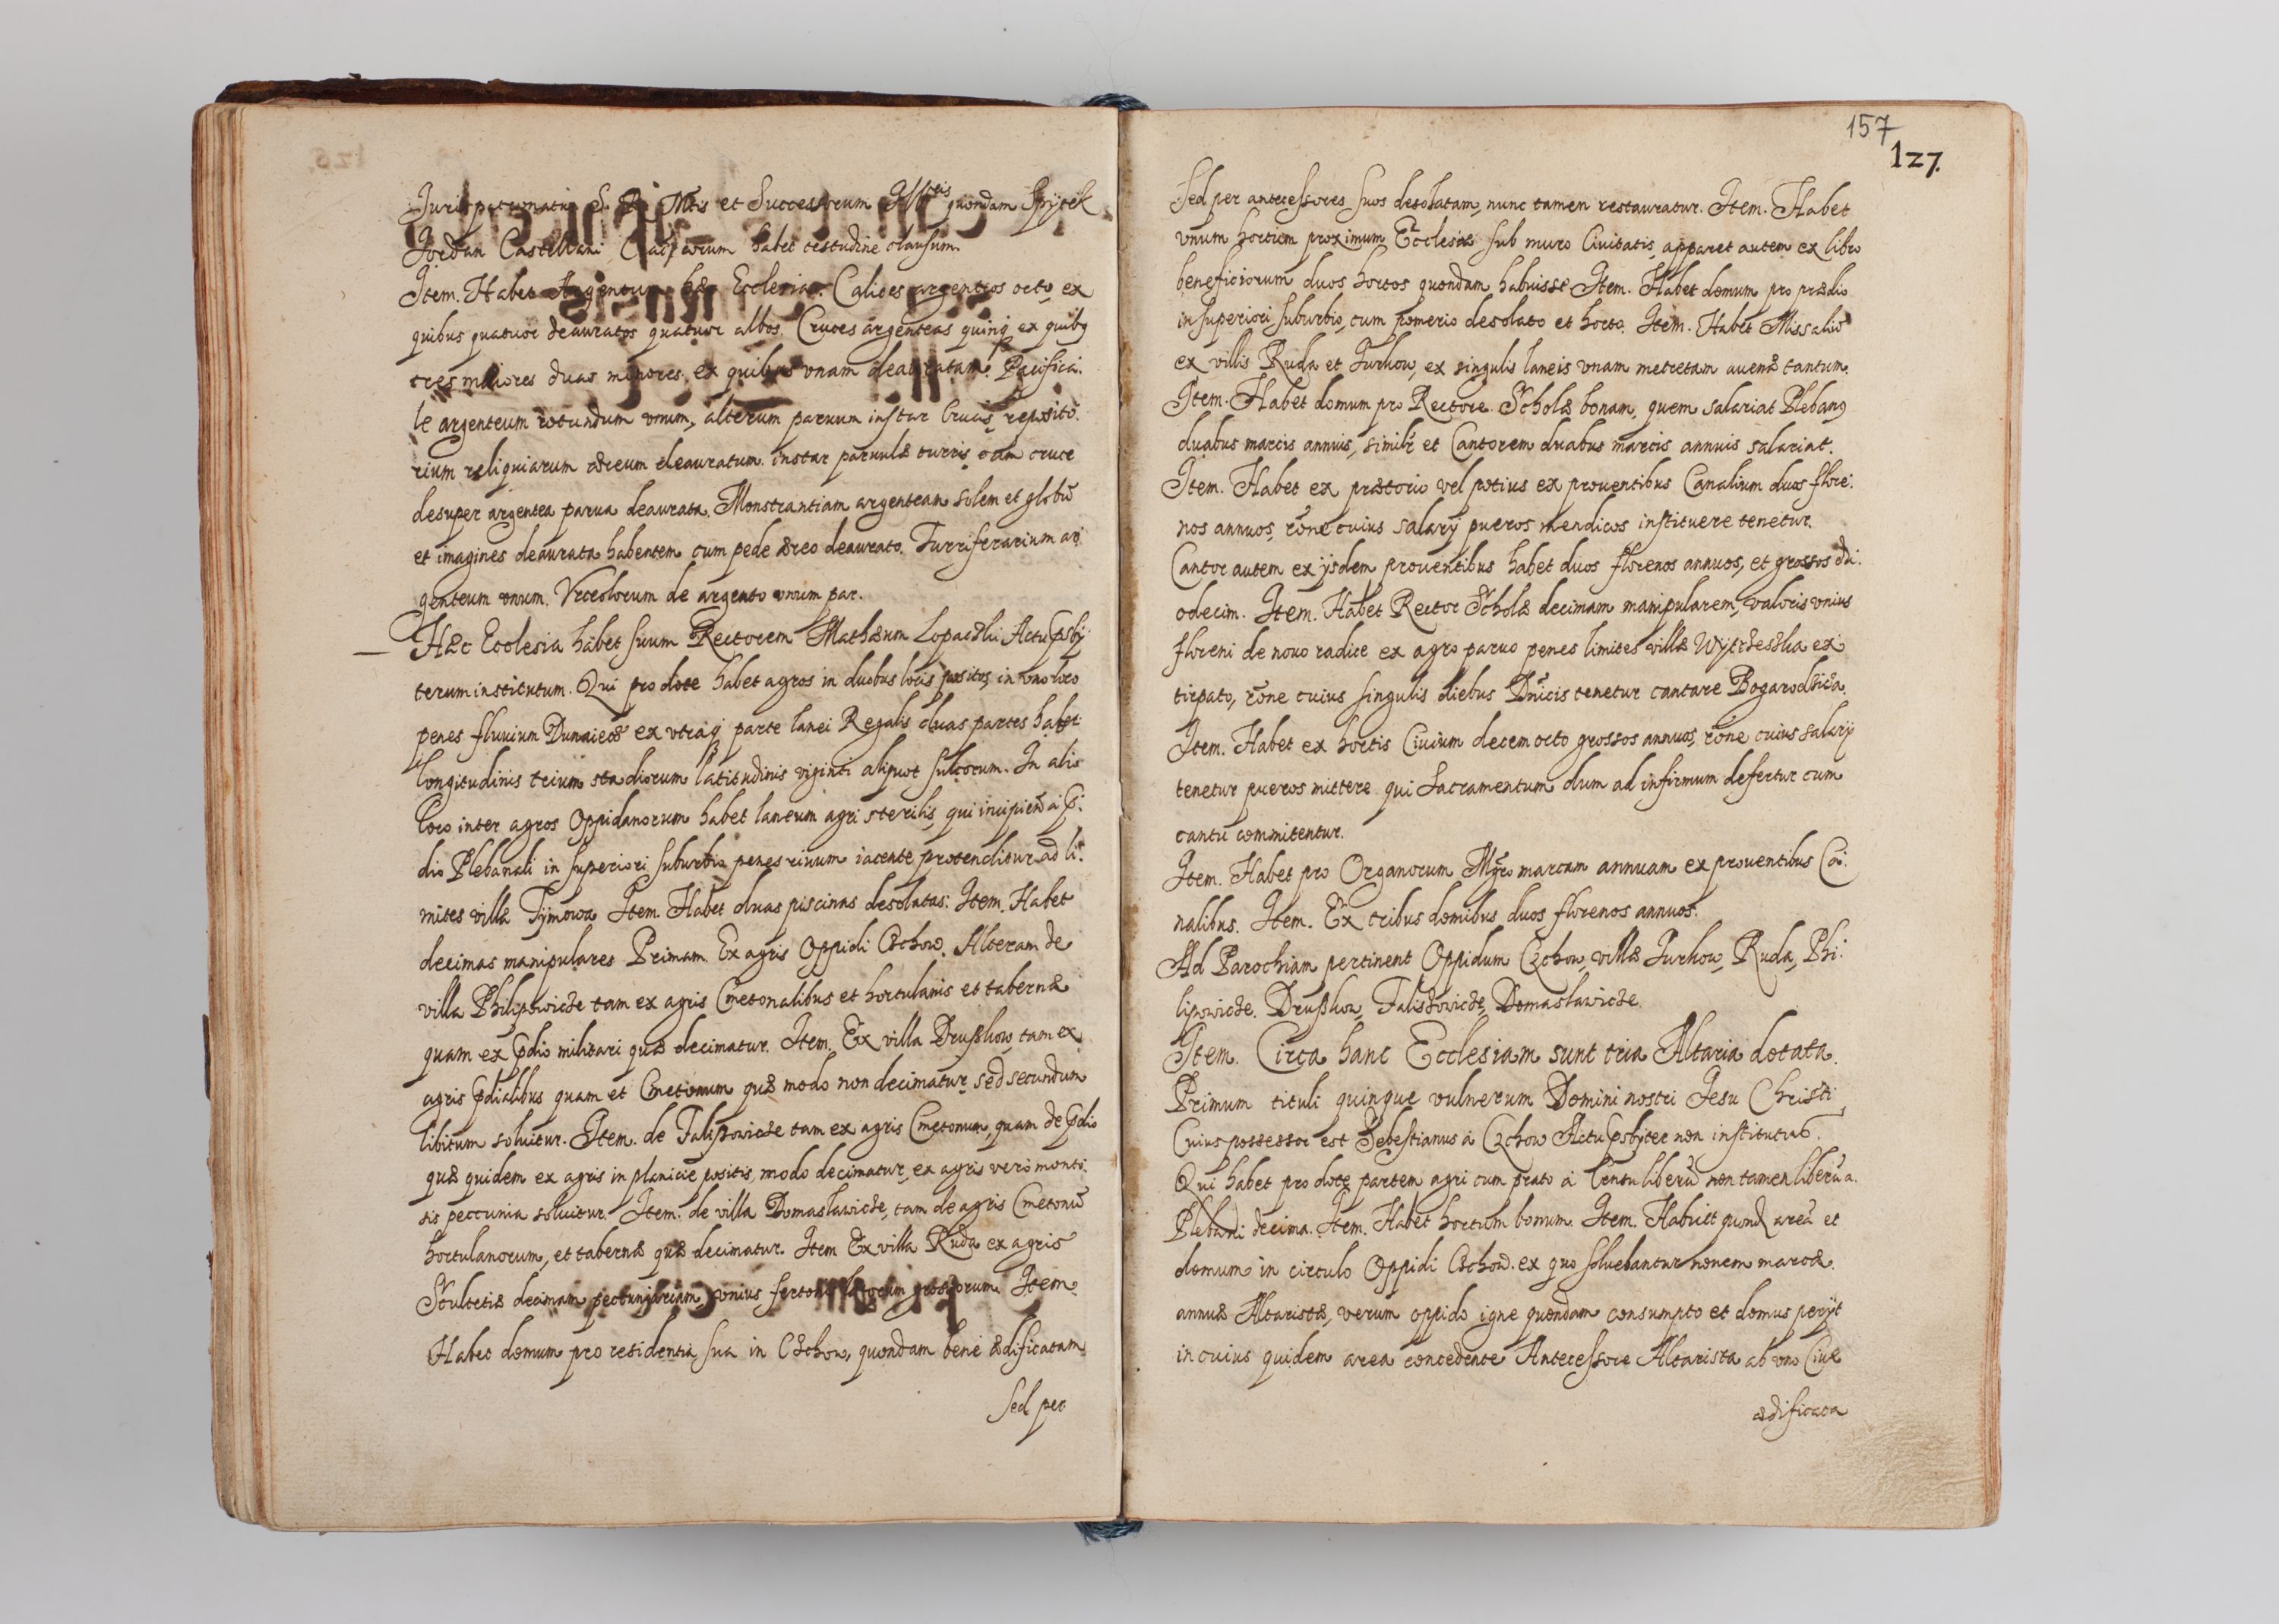 Jurispatronatus S. R. Mtis et Successorum Illtris quondam Spytek
Jordan Castellani Crac. corum habet testudine clausum.
Item. Habet Argentum hæc Ecclesia. Calices argenteos octo, ex
quibus quatuor deauratos quatuor albos. Cruces argenteas quinq ex quibꝰ
tres maiores duas minores, ex quibus vnam deauratam. Pacifica:
le argenteum rotundum vnum, alterum paruum instar Crucis, repositō:
rium reliquiarum æreum deauratum instar paruulæ turris cum cruce
desuper argentea parua deaurata. Monstrantiam argenteam solem et globū
et imagines deaurata habentem cum pede æreo deaurato. Turriferarium ar:
genteum vnum. Vrceolorum de argento vnum par.
Hæc Ecclesia habet suum Rectorem Mathæum Lopaczki Actu Psby:
terum institutum. Qui pro dote habet agros in duobus locis positos, in vno loco
penes fluuium Dunaiecz ex vtraq parte lanei Regalis duas partes habet
longitudinis trium stadiorum latitudinis viginti aliquot sulcorum. In alio
loco inter agros Oppidanorum habet laneum agri sterilis, qui incipiens a p:
dio Plebanali in superiori suburbio penes riuum iacente protenditur ad li:
mites villæ Tymowa Item. Habet duas piscinas desolatas. Item. Habet
decimas manipulares Primam. Ex agris Oppidi Czchow. Alteram de
villa Philipowicze tam ex agris Cmetonalibus et hortulanis et tabernæ
quam ex pdio militari quæ decimatur. Item. Ex villa Drusskow, tam ex
agris pdialibus quam et Cmetonum quæ modo non decimatur, sed secundum
libitum soluitur. Item. de Faliszowicze tam ex agris Cmetonum, quam de pdio
quæ quidem ex agris in planicie positis, modo decimatur, ex agris vero monto:
sis peccunia soluitur. Item. de villa Domaslawicze, tam de agris Cmetonū
hortulanorum, et tabernæ quæ decimatur. Item Ex villa Ruda ex agris
Scultetiæ decimam peccuniariam, vnius fertonis latorum grossorum. Item.
Habet domum pro residentia sua in Czchow, quondam bene ædificatam
Sed per
157
127.
Sed per antecessores suos desolatam, nunc tamen restauratur. Item. Habet
vnum hortum proximum Ecclesiæ sub muro Ciuitatis, apparet autem ex libro
beneficiorum duos hortos quondam habuisse Item. Habet domum pro prædio
in superiori suburbio, cum pomerio desolato et horto. Item. Habet Missaliū
ex villis Ruda et Jurkow, ex singulis laneis vnam metretam auenæ tantum.
Item. Habet domum pro Rectore Scholæ bonam, quem salariat Plebanꝰ
duabus marcis annuis, similr et Cantorem duabus marcis annuis salariat.
Item. Habet ex prætorio vel potius ex prouentibus Canalium duos flore:
nos annuos, rōne cuius salary pueros mendicos instituere tenetur.
Cantor autem ex ijsdem prouentibus habet duos florenos annuos, et grossos du:
odecim. Item. Habet Rector Scholæ decimam manipularem, valoris vnius
floreni de nouo radice ex agro paruo penes limites villæ Wytrzeszka ex
tirpato, rōne cuius singulis diebus Dnicis tenetur cantare Bogarodzica.
Item. Habet ex hortis Ciuium decem octo grossos annuos, rōne cuius salary
tenetur pueros mittere qui Sacramentum dum ad infirmum defertur cum
cantu commitentur.
Item. Habet pro Organorum Mgro marcam annuam ex prouentibus Ca:
nalibus. Item. Ex tribus domibus duos florenos annuos.
Ad Parochiam pertinent Oppidum Czchow, villæ Jurkow, Ruda, Phi:
lipowicze. Drusskow, Faliszowicze, Domaslawicze.
Item. Circa hanc Ecclesiam sunt tria Altaria dotata.
Primum tituli quinque vulnerum Domini nostri Jesu Christi,
Cuius possessor est Sebestianus a Czchow Actu Psbyter non institutus.
Qui habet pro dote partem agri cum prato a Censu liberū non tamen liberū a
Plebani decima. Item. Habet hortum bonum. Item. Habuit quond areā et
domum in circulo Oppidi Czchow. ex quo soluebantur nonem marcæ
annuæ Altaristæ, verum oppido igne quondam consumpto et domus perijt
in cuius quidem area concedente Antecessore Altarista ab vno Ciue
ædificata